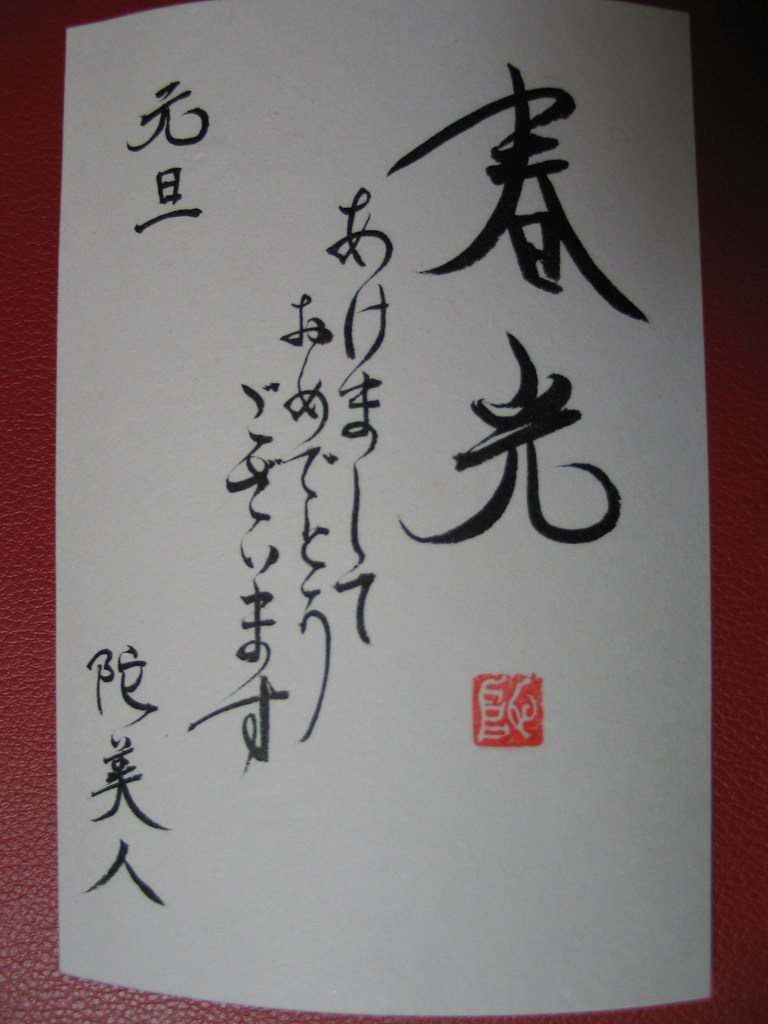 春光
あけまして
おめでとう
ございます
元旦
陀美人